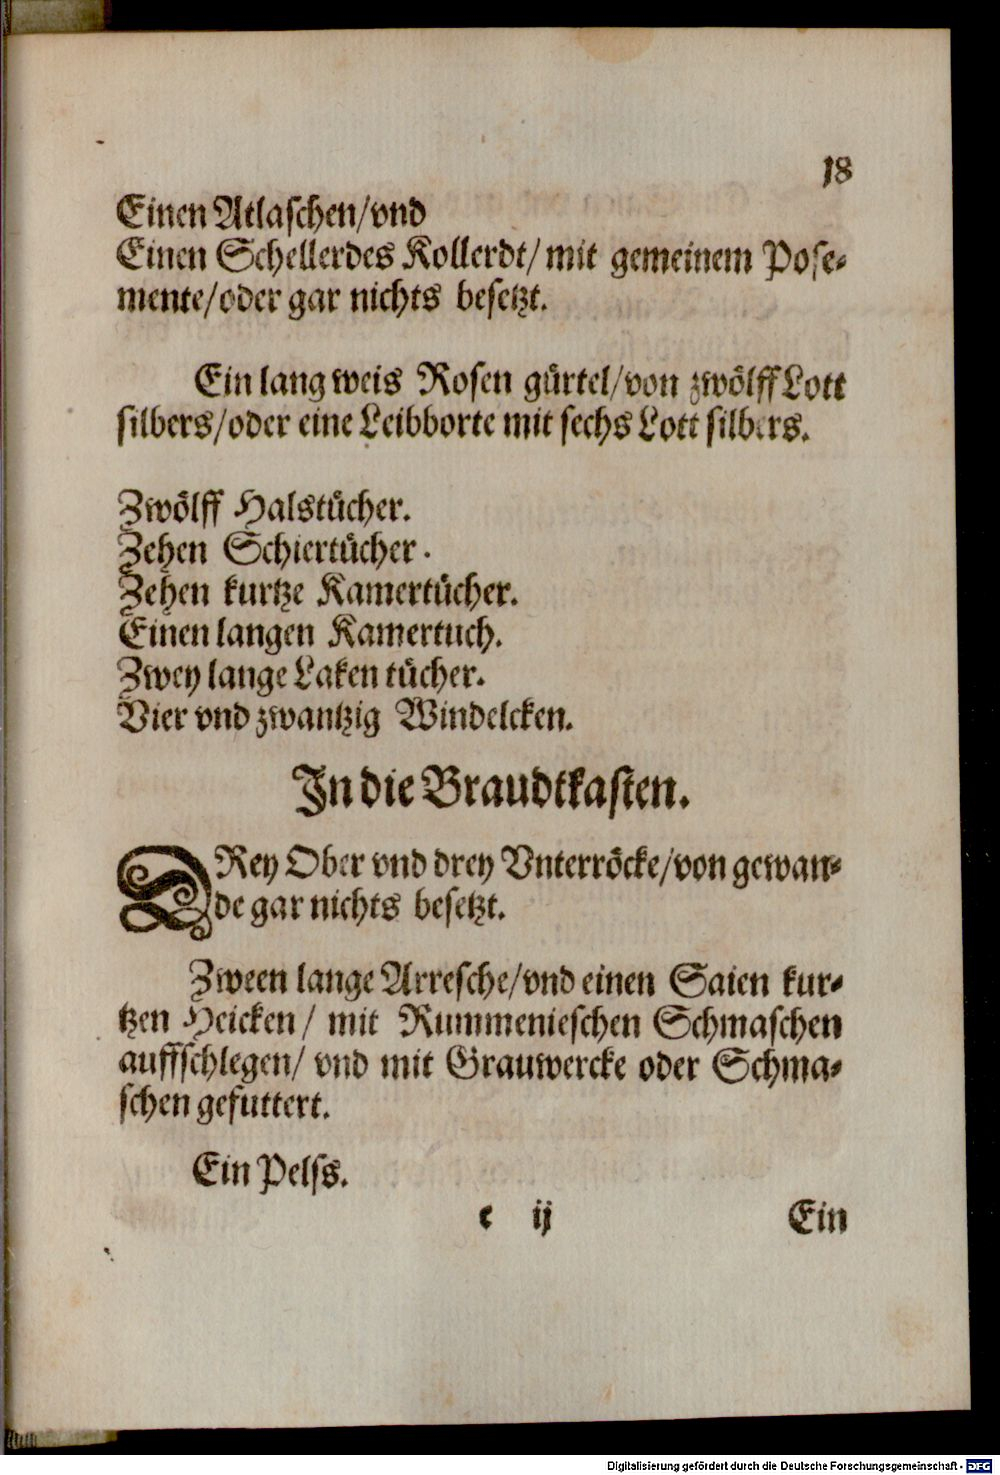 18
Einen Atlaschen/vnd
Einen Schellerdes Kollerdt/ mit gemeinem Pose-
mente/oder gar nichts besetzt.
Ein lang weis Rosen gürtel/von zwölff Lott
silbers/oder eine Leibborte mit sechs Lott silbers.
Zwölff Halstücher.
Zehen Schiertücher.
Zehen kurtze Kamertücher.
Einen langen Kamertuch.
Zwey lange Laken tücher.
Vier vnd zwantzig Windelcken.
In die Braudtkasten.
DRey Ober vnd drey Vnterröcke/von gewan-
de gar nichts besetzt.
Zween lange Arresche/vnd einen Saien kur-
tzen Heicken/ mit Rummenieschen Schmaschen
auffschlegen/ vnd mit Grauwercke oder Schma-
schen gefuttert.
Ein Pelss.
e ij Ein
Digitalisierung gefördert durch die Deutsche Forschungsgemeinschaft - DFG